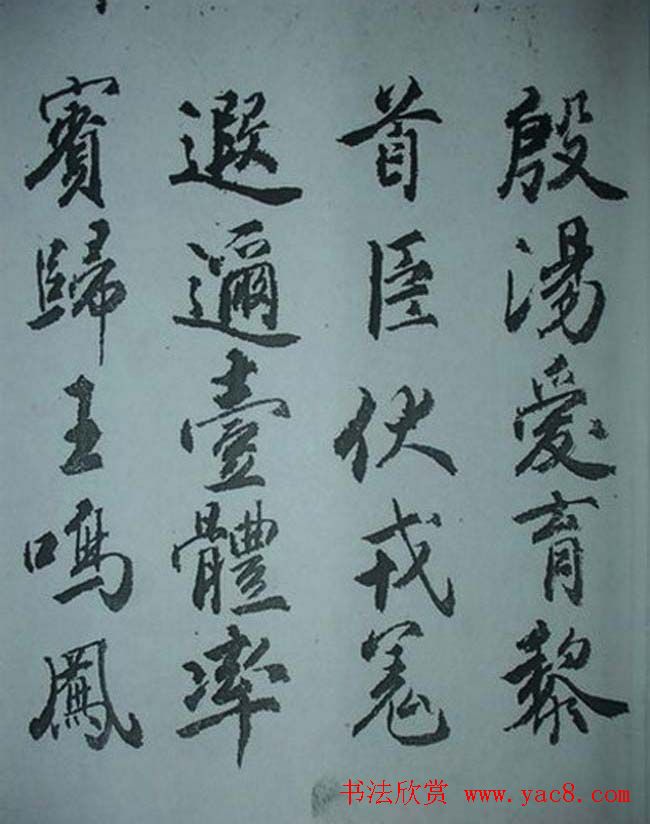 殷湯愛育黎
首臣伏戎羌
遐邇壹體率
賓歸王鳴鳳
书法欣赏 www.yac8.com